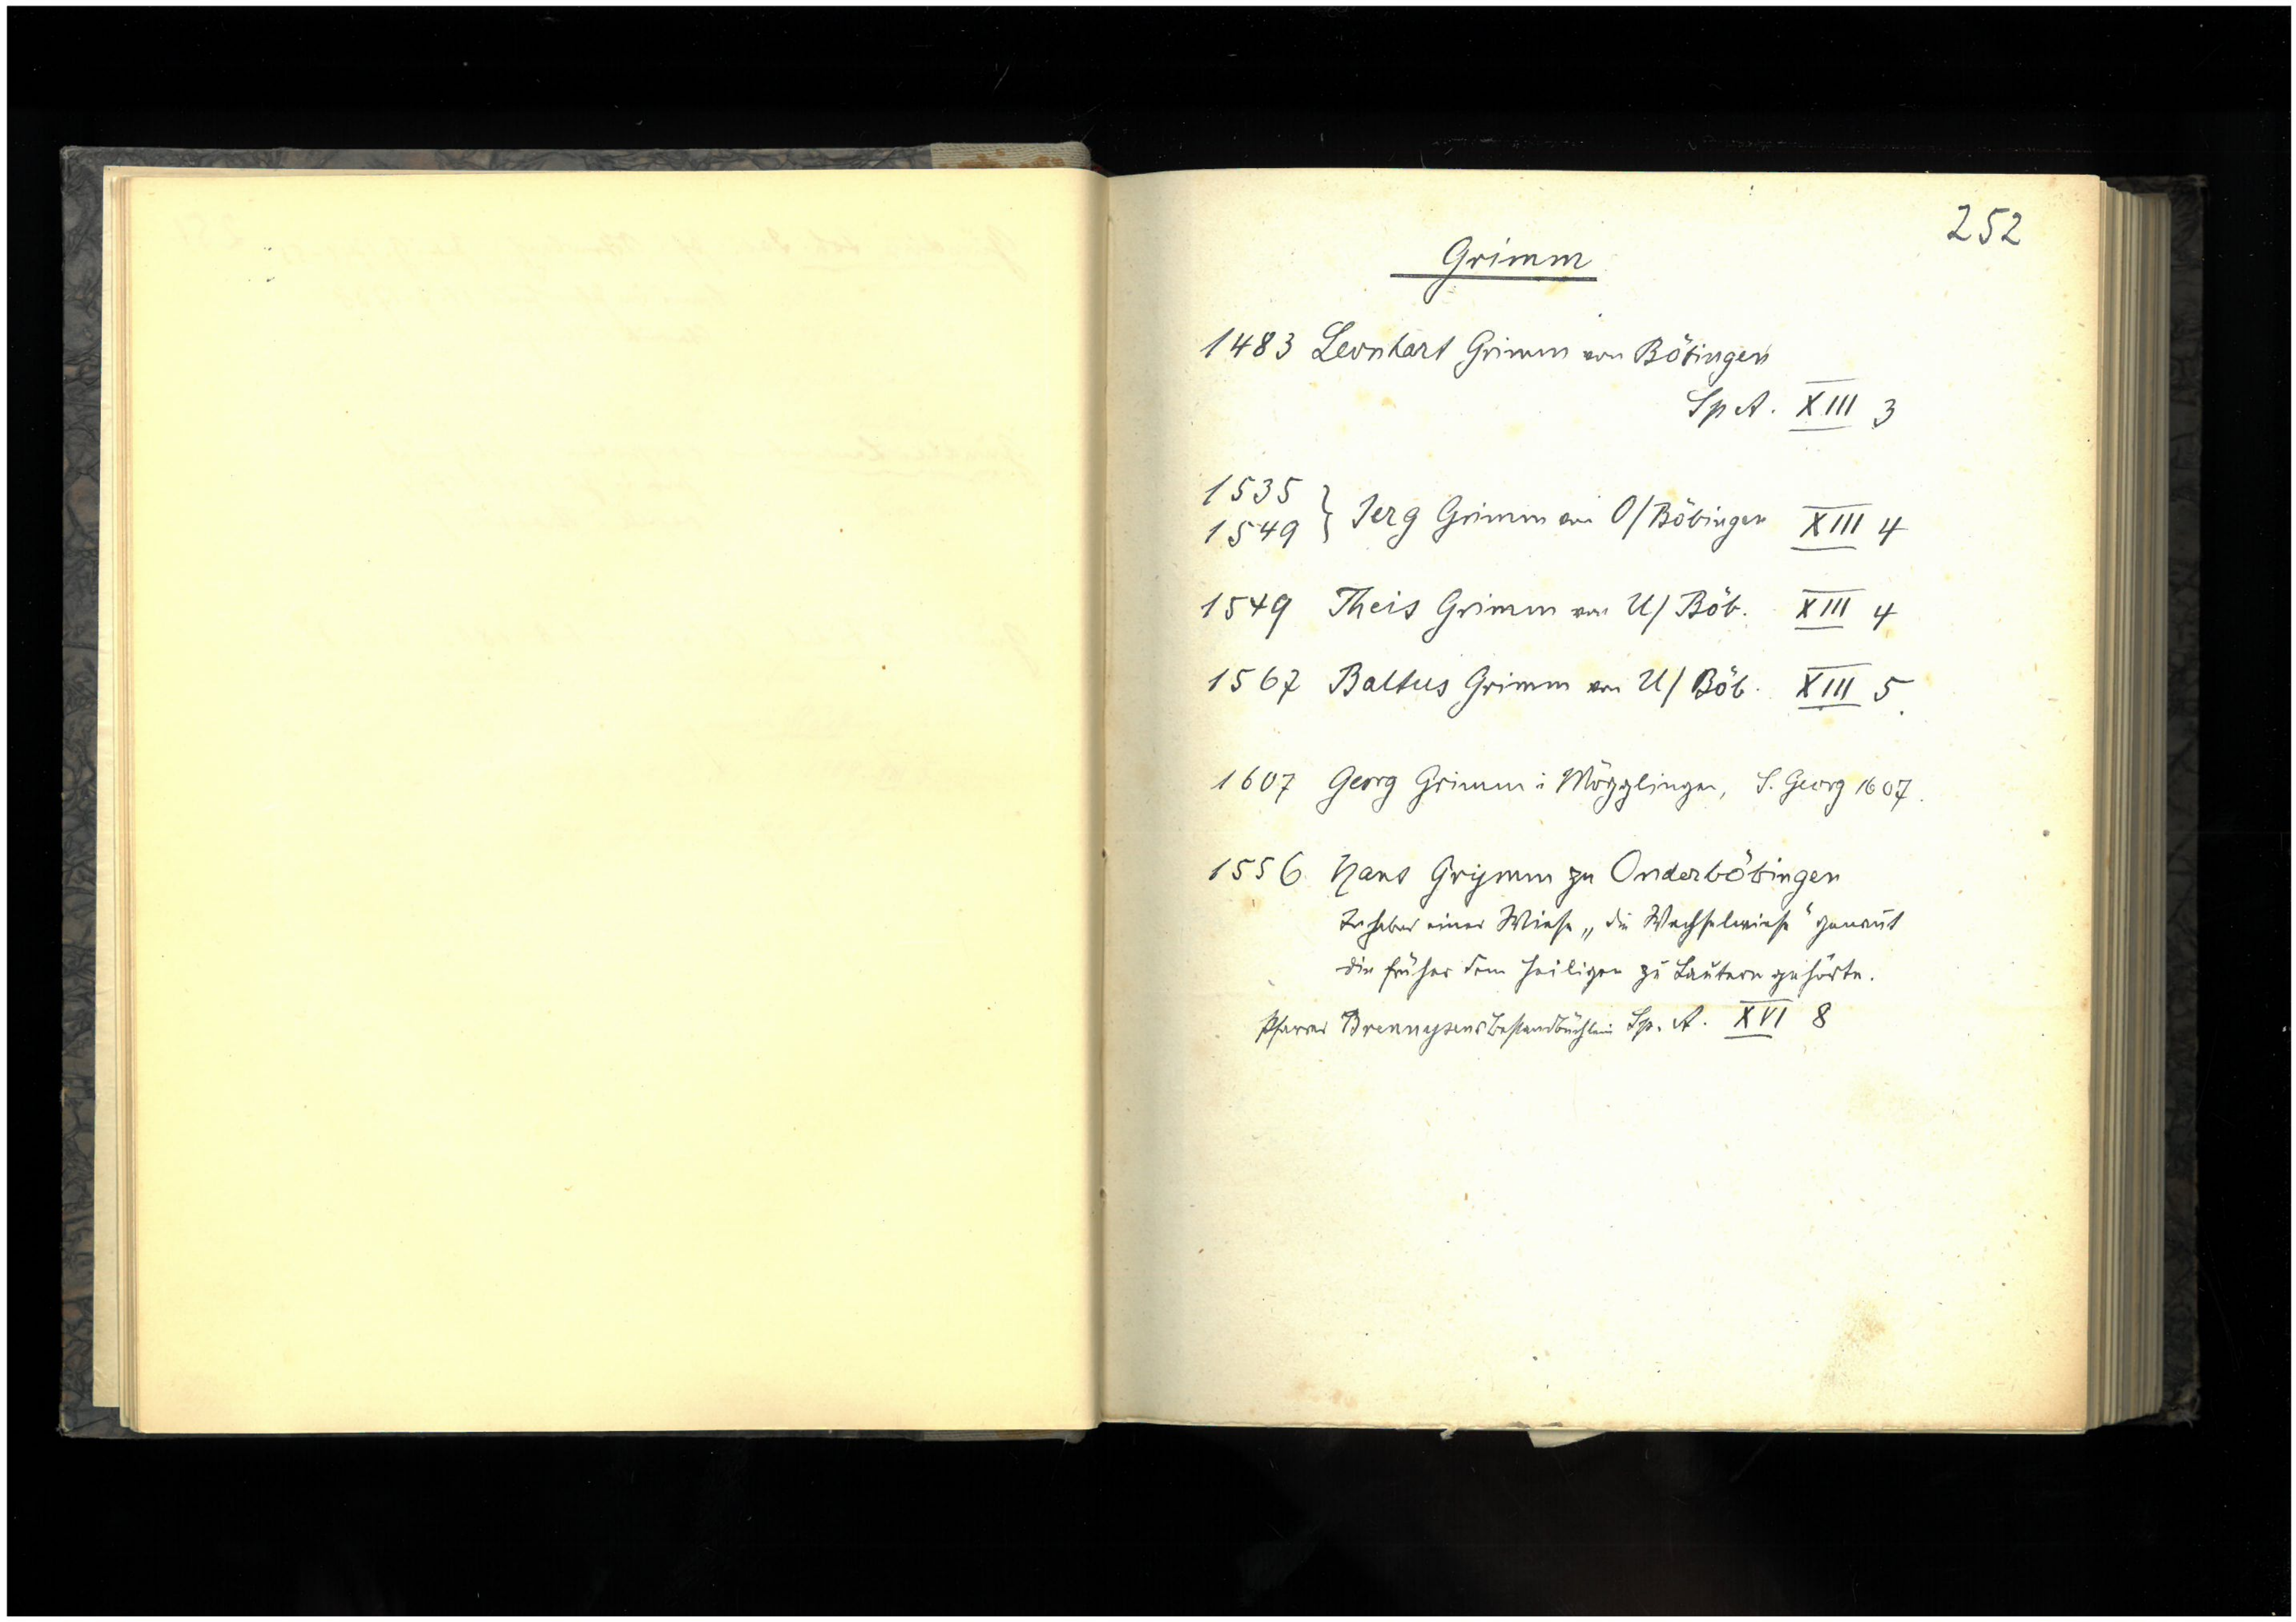 252
Grimm
1483 Leonhart Grimm von Böbingen
Sp A. XIII 3
1535
1549 } Jerg Grimm von O/Böbingen XIII 4
1549 Theis Grimm von U/Böb. XIII 4
1567 Baltus Grimm von U/Böb. XIII 5
1607 Georg Grimm i Mögglingen, S. Georg 1607.
1556 Hans Grymm zu Onderböbingen
Inhaber einer Wiese „die Wechselwiese“ genannt
die früher dem Heiligen zu Lautern gehörte.
Pfarrer Brennysens Bestandbüchlein Sp. A. XVI 8